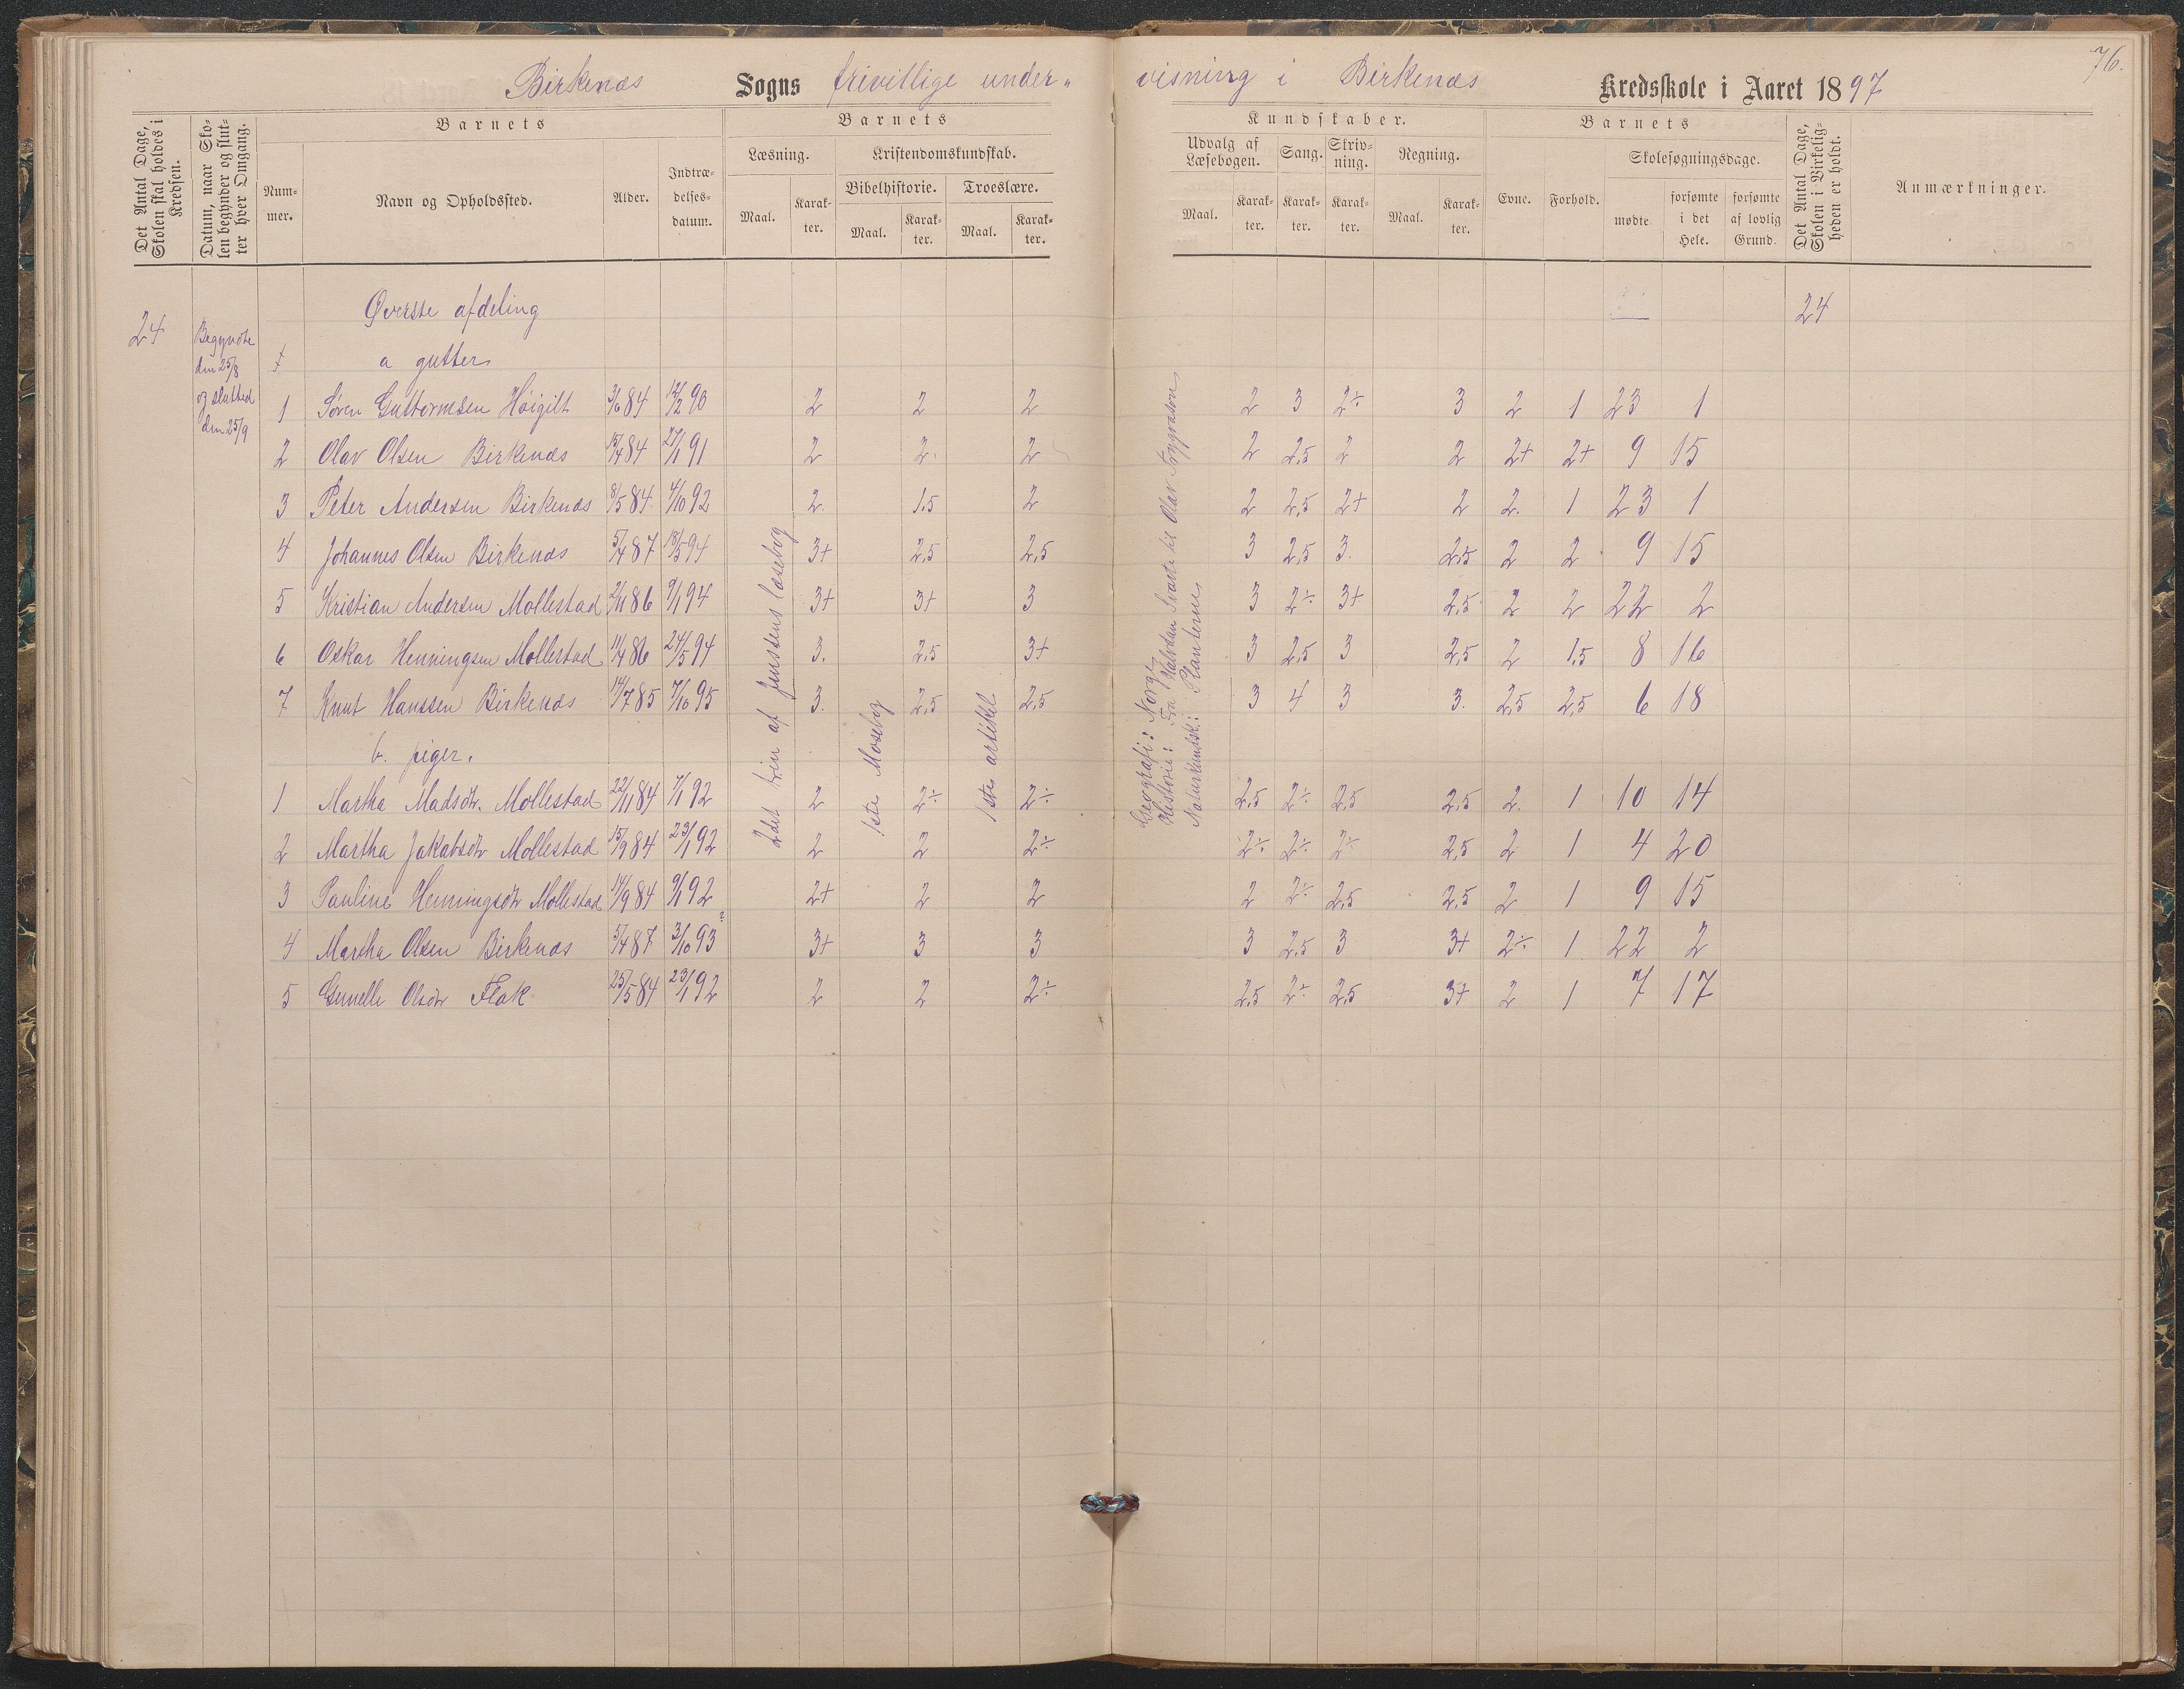 76.
Birkenæs Sogns frivillige under- visning i Birkenæs Kredsskole i Aaret 1897
Det Antal Dage, Skolen skal holdes i Kredsen.
Datum, naar Skolen begynder og slutter hver Omgang.
Barnets
Nummer.
Navn og Opholdssted.
Alder.
Indtrædelsesdatum.
Barnets
Læsning.
Maal.
Karakter.
Kristendomskundskab.
Bibelhistorie.
Maal.
Karakter.
Troeslære.
Maal.
Karakter.
Kundskaber.
Udvalg af Læsebogen.
Maal.
Karakter.
Sang.
Karakter.
Skrivning.
Karakter.
Regning.
Maal.
Karakter.
Barnets
Evne.
Forhold.
Skolesøgningsdage.
mødte
forsømte i det Hele.
forsømte af lovlig Grund.
Det Antal Dage, Skolen i Virkeligheden er holdt.
Anmærkninger.
24
Begyndte den 25/8 og slutted den 25/9
Øverste afdeling
24
a gutter
1 Søren Guttormsen Høigilt 3/6 84 12/2 90 2 2 2 2 3 2÷ 3 2 1 23 1
2 Olav Olsen Birkenæs 15/4 84 27/1 91 2 2 2 2 2,5 2 2 2+ 2+ 9 15
3 Peter Andersen Birkenæs 8/5 84 4/10 92 2 1.5 2 2 2,5 2+ 2 2 1 23 1
4 Johannes Olsen Birkenæs 5/4 87 18/5 94 3+ 2,5 2,5 3 2,5 3 2,5 2 2 9 15
5 Kristian Andersen Mollestad 2/11 86 9/1 94 3+ 3+ 3 3 2÷ 3+ 2,5 2 2 22 2
6 Oskar Henningsen Mollestad 11/4 86 24/5 94 3. 2,5 3+ 3 2,5 3 2,5 2 1.5 8 16
7 Knut Hanssen Birkenæs 14/7 85 7/10 95 3. 2,5 2,5 3 4 3 3. 2,5 2,5 6 18
b. piger.
1 Martha Madsdtr. Mollestad 22/11 84 7/1 92 2 2÷ 2÷ 2,5 2÷ 2,5 2,5 2. 1 10 14
2 Martha Jakabsdtr Mollestad 15/9 84 23/1 92 2 2 2÷ 2÷ 2÷ 2÷ 2,5 2 1 4 20
3 Pauline Henningsdtr Mollestad 14/9 84 9/1 92 2+ 2 2 2 2÷ 2,5 2,5 2 1 9 15
4 Martha Olsen Birkenæs 5/4 87 3/10 93? 3+ 3 3 3 2,5 3 3+ 2÷ 1 22 2
5 Gunelle Olsdtr Flak 25/5 84 23/1 92 2 2 2÷ 2,5 2÷ 2,5 3+ 2 1 7 17
2det trin af Jenssens læsebog
1ste Mosebog
1ste artikel
Geografi: Norge
Historie: Fra Halvdan Svarte til Olav Trygvason
Naturkundsk: Planterne